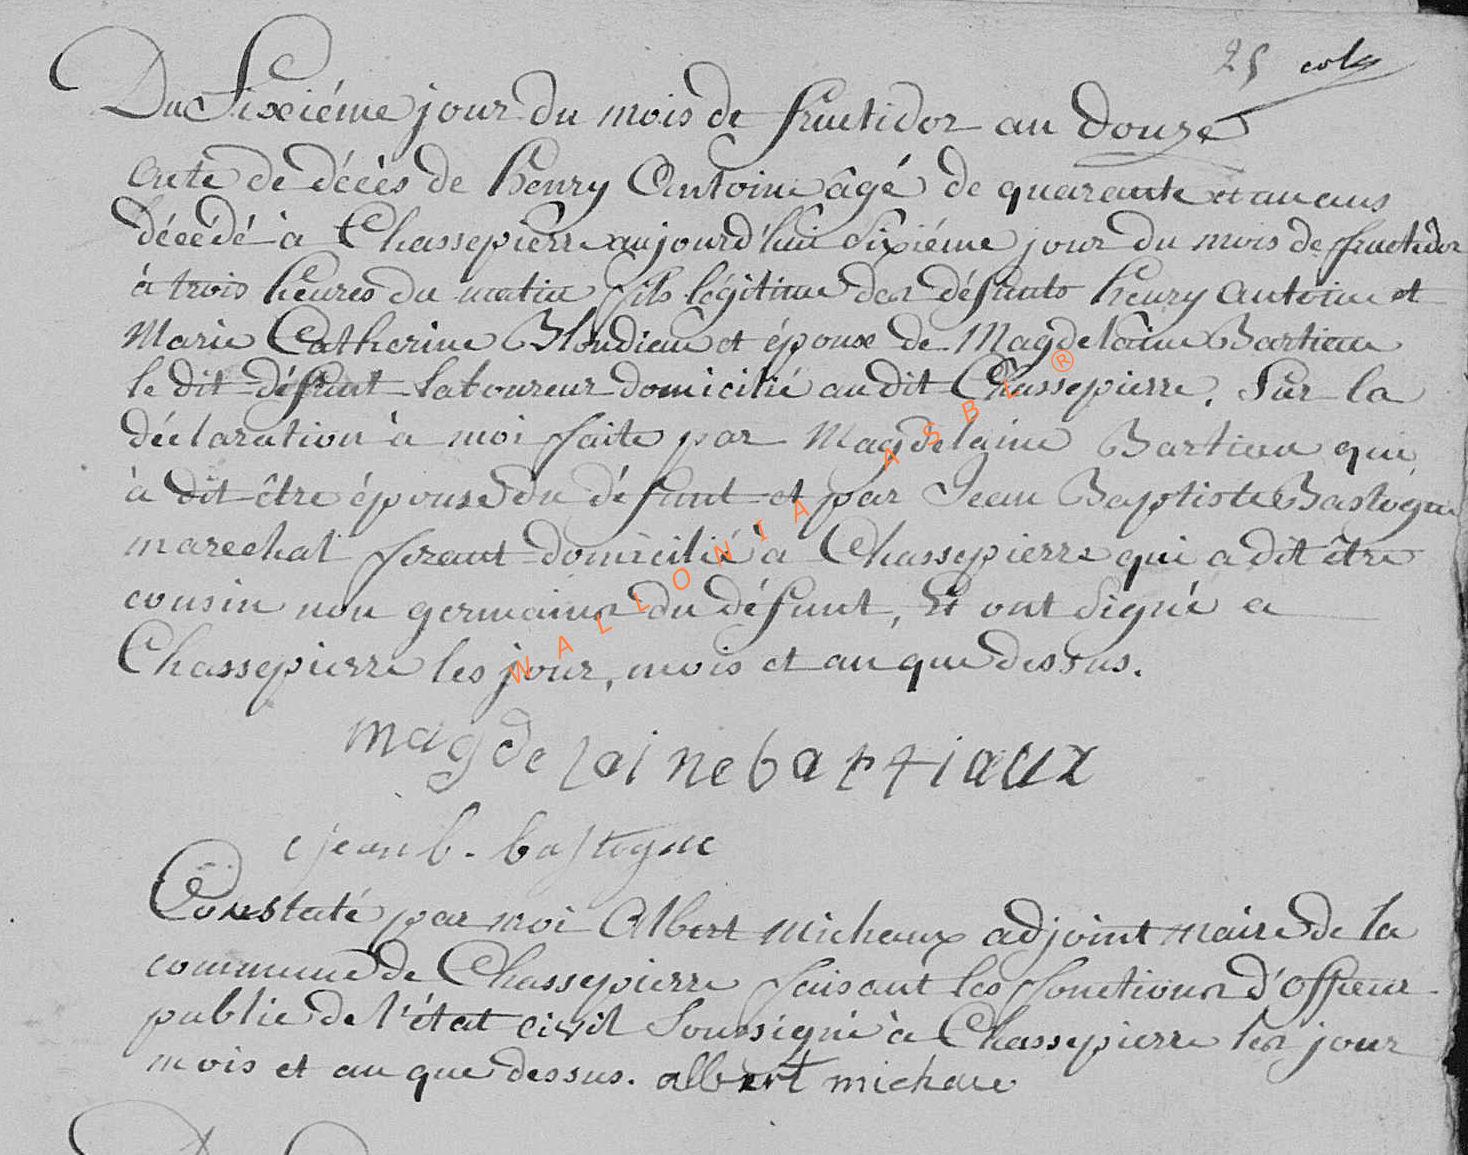 25
Du Sixiéme jour du mois de fructidor an douze
acte de décès de henry Antoine âgé de quarante et un ans
décédé à Chassepierre aujourd'hui Sixiéme jour du mois de fructidor
à trois heures du matin fils légitime des défunts henry antoine et
Marie Catherine Blondieau et époux de Magdelaine Bartiau
le dit défunt laboureur domicilié au dit Chassepierre. Sur la
déclaration à moi faite par Magdelaine Bartiau qui
à dit être épouse du défunt et par Jean Baptiste Bastogne
marechal ferant domicilié à Chassepierre qui a dit être
cousin non germains du défunt, Et ont Signé a
Chassepierre les jour, mois et an que dessus.
magdelaine bartiaux
jean b. bastogne
Constaté par moi Albert michaux adjoint maire de la
commune de Chassepierre faisant les fonctions d'officier
public de l'état civil Soussigné à Chassepierre les jour
mois et an que dessus. albert michau
WALLONIA ASBL ®